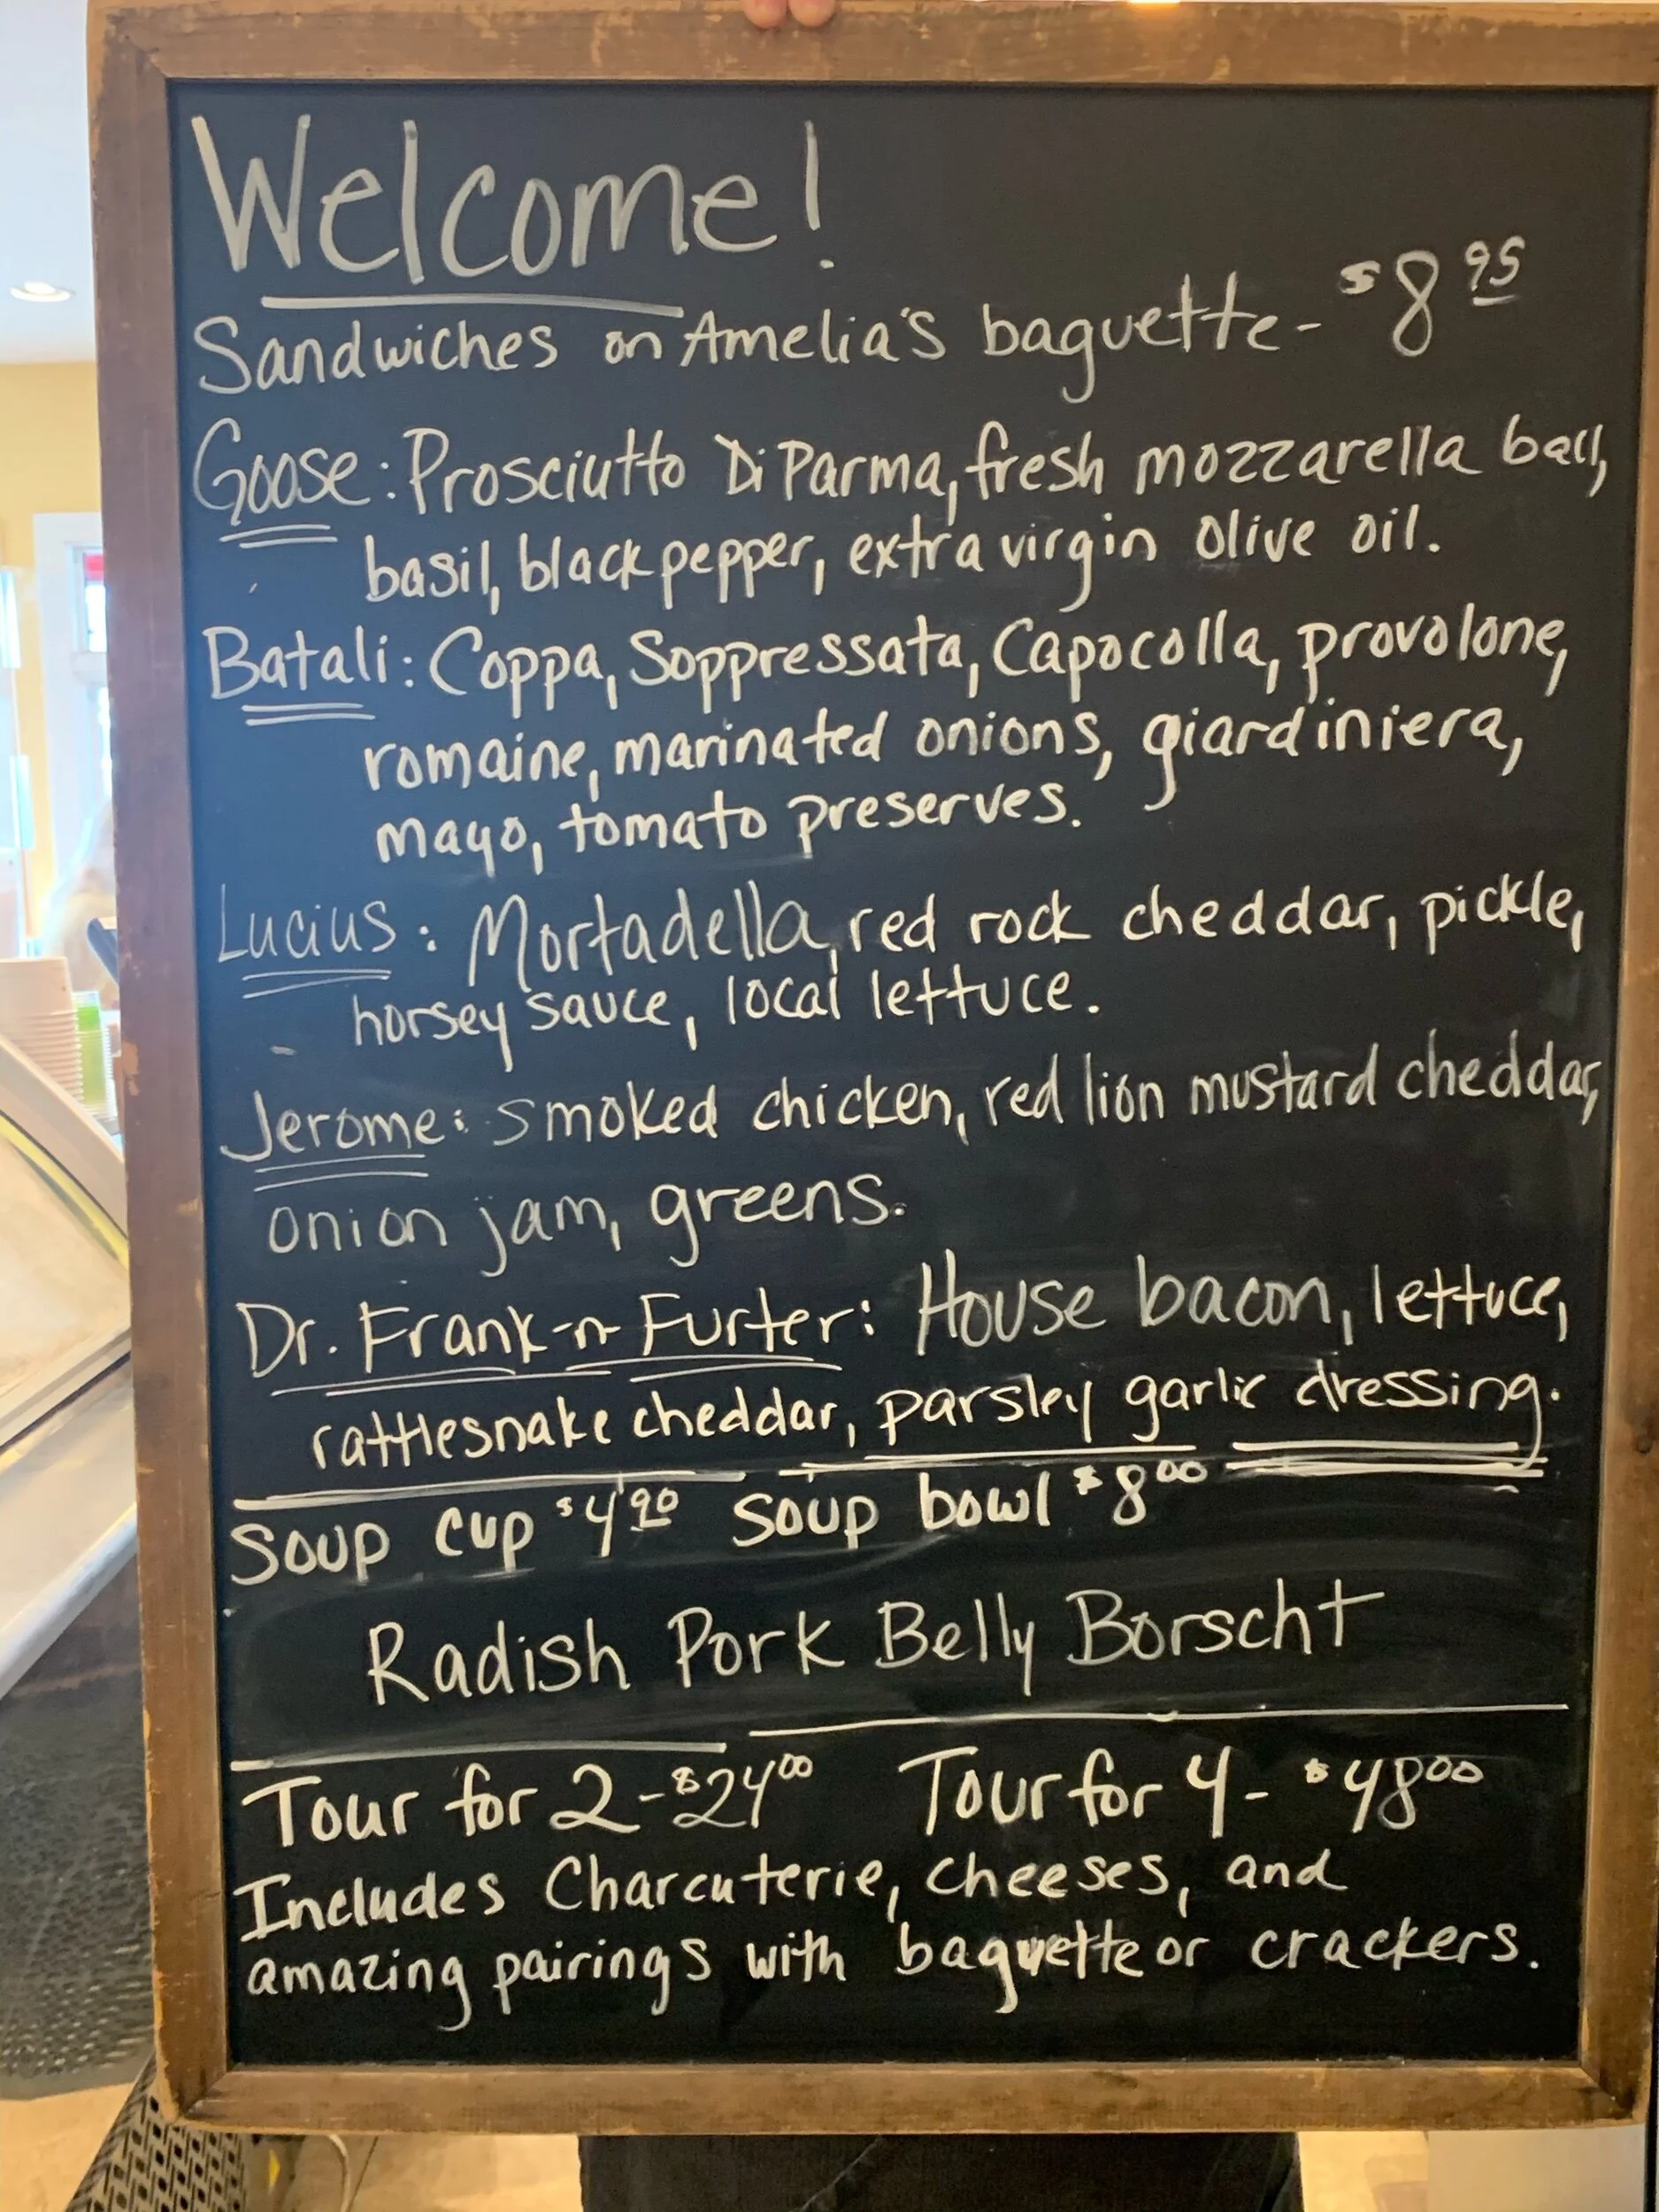 Welcome!
Sandwiches on Amelia's baguette- $8.95
Goose: Prosciutto Di Parma, fresh mozzarella ball,
basil, black pepper, extra virgin olive oil.
Batali: Coppa, Soppressata, Capocolla, provolone,
romaine, marinated onions, giardiniera,
mayo, tomato preserves.
Lucius: Mortadella, red rock cheddar, pickle,
horsey sauce, local lettuce.
Jerome: smoked chicken, red lion mustard cheddar,
onion jam, greens.
Dr. Frank-n-Furter: House bacon, lettuce,
rattlesnake cheddar, parsley garlic dressing.
Soup cup $4.90 Soup bowl $8.00
Radish Pork Belly Borscht
Tour for 2-$24.00 Tour for 4- $48.00
Includes Charcuterie, cheeses, and
amazing pairings with baguette or crackers.